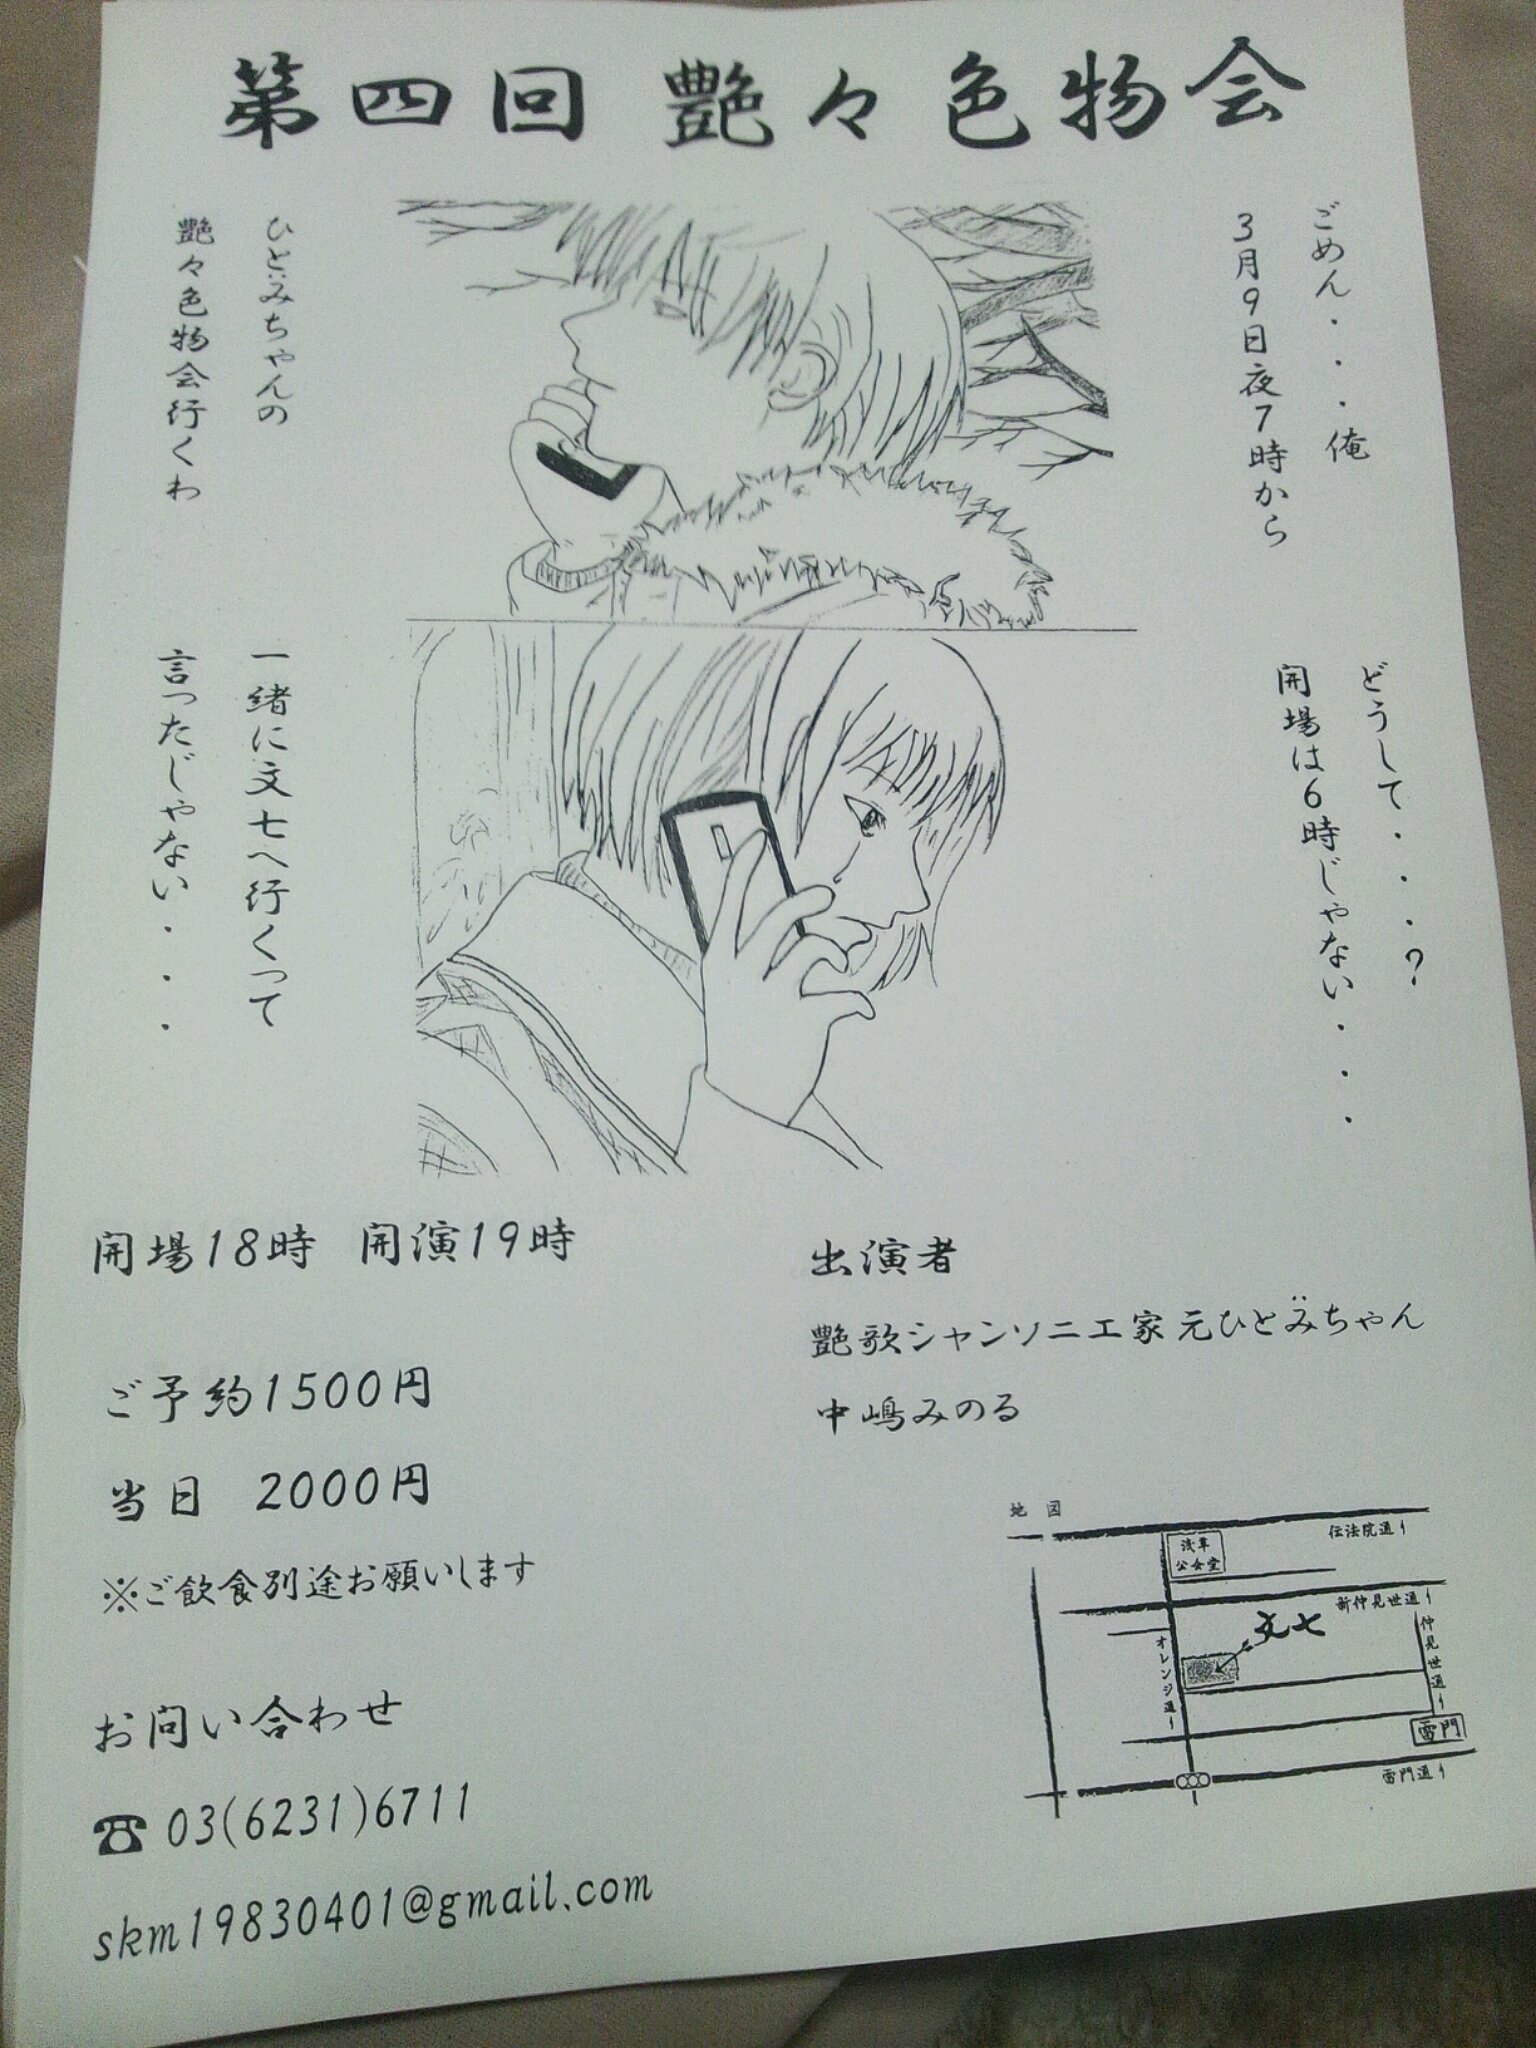 第四回 艶々色物会
ごめん・・・俺
3月9日夜7時から
ひとみ̈ちゃんの
艶々色物会行くわ
どうして・・・?
開場は6時じゃない・・・
一緒に文七へ行くって
言ったじゃない・・・
開場18時 開演19時
ご予約1500円
当日 2000円
※ご飲食別途お願いします
お問い合わせ
☎03(6231)6711
skm19830401@gmail.com
出演者
艶歌シャンソニエ家元ひとみ̈ちゃん
中嶋みのる
地図
伝法院通り
浅草
公会堂
新仲見世通り
文七
オレンジ通り
仲見世通り
雷門
雷門通り